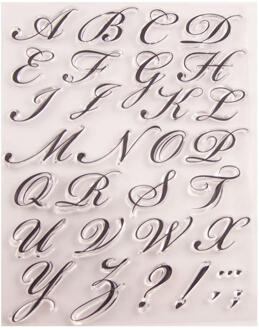 A B C D
E F G H
I J K L
M N O P
Q R S T
U V W X
Y Z ? ! , ; . . .